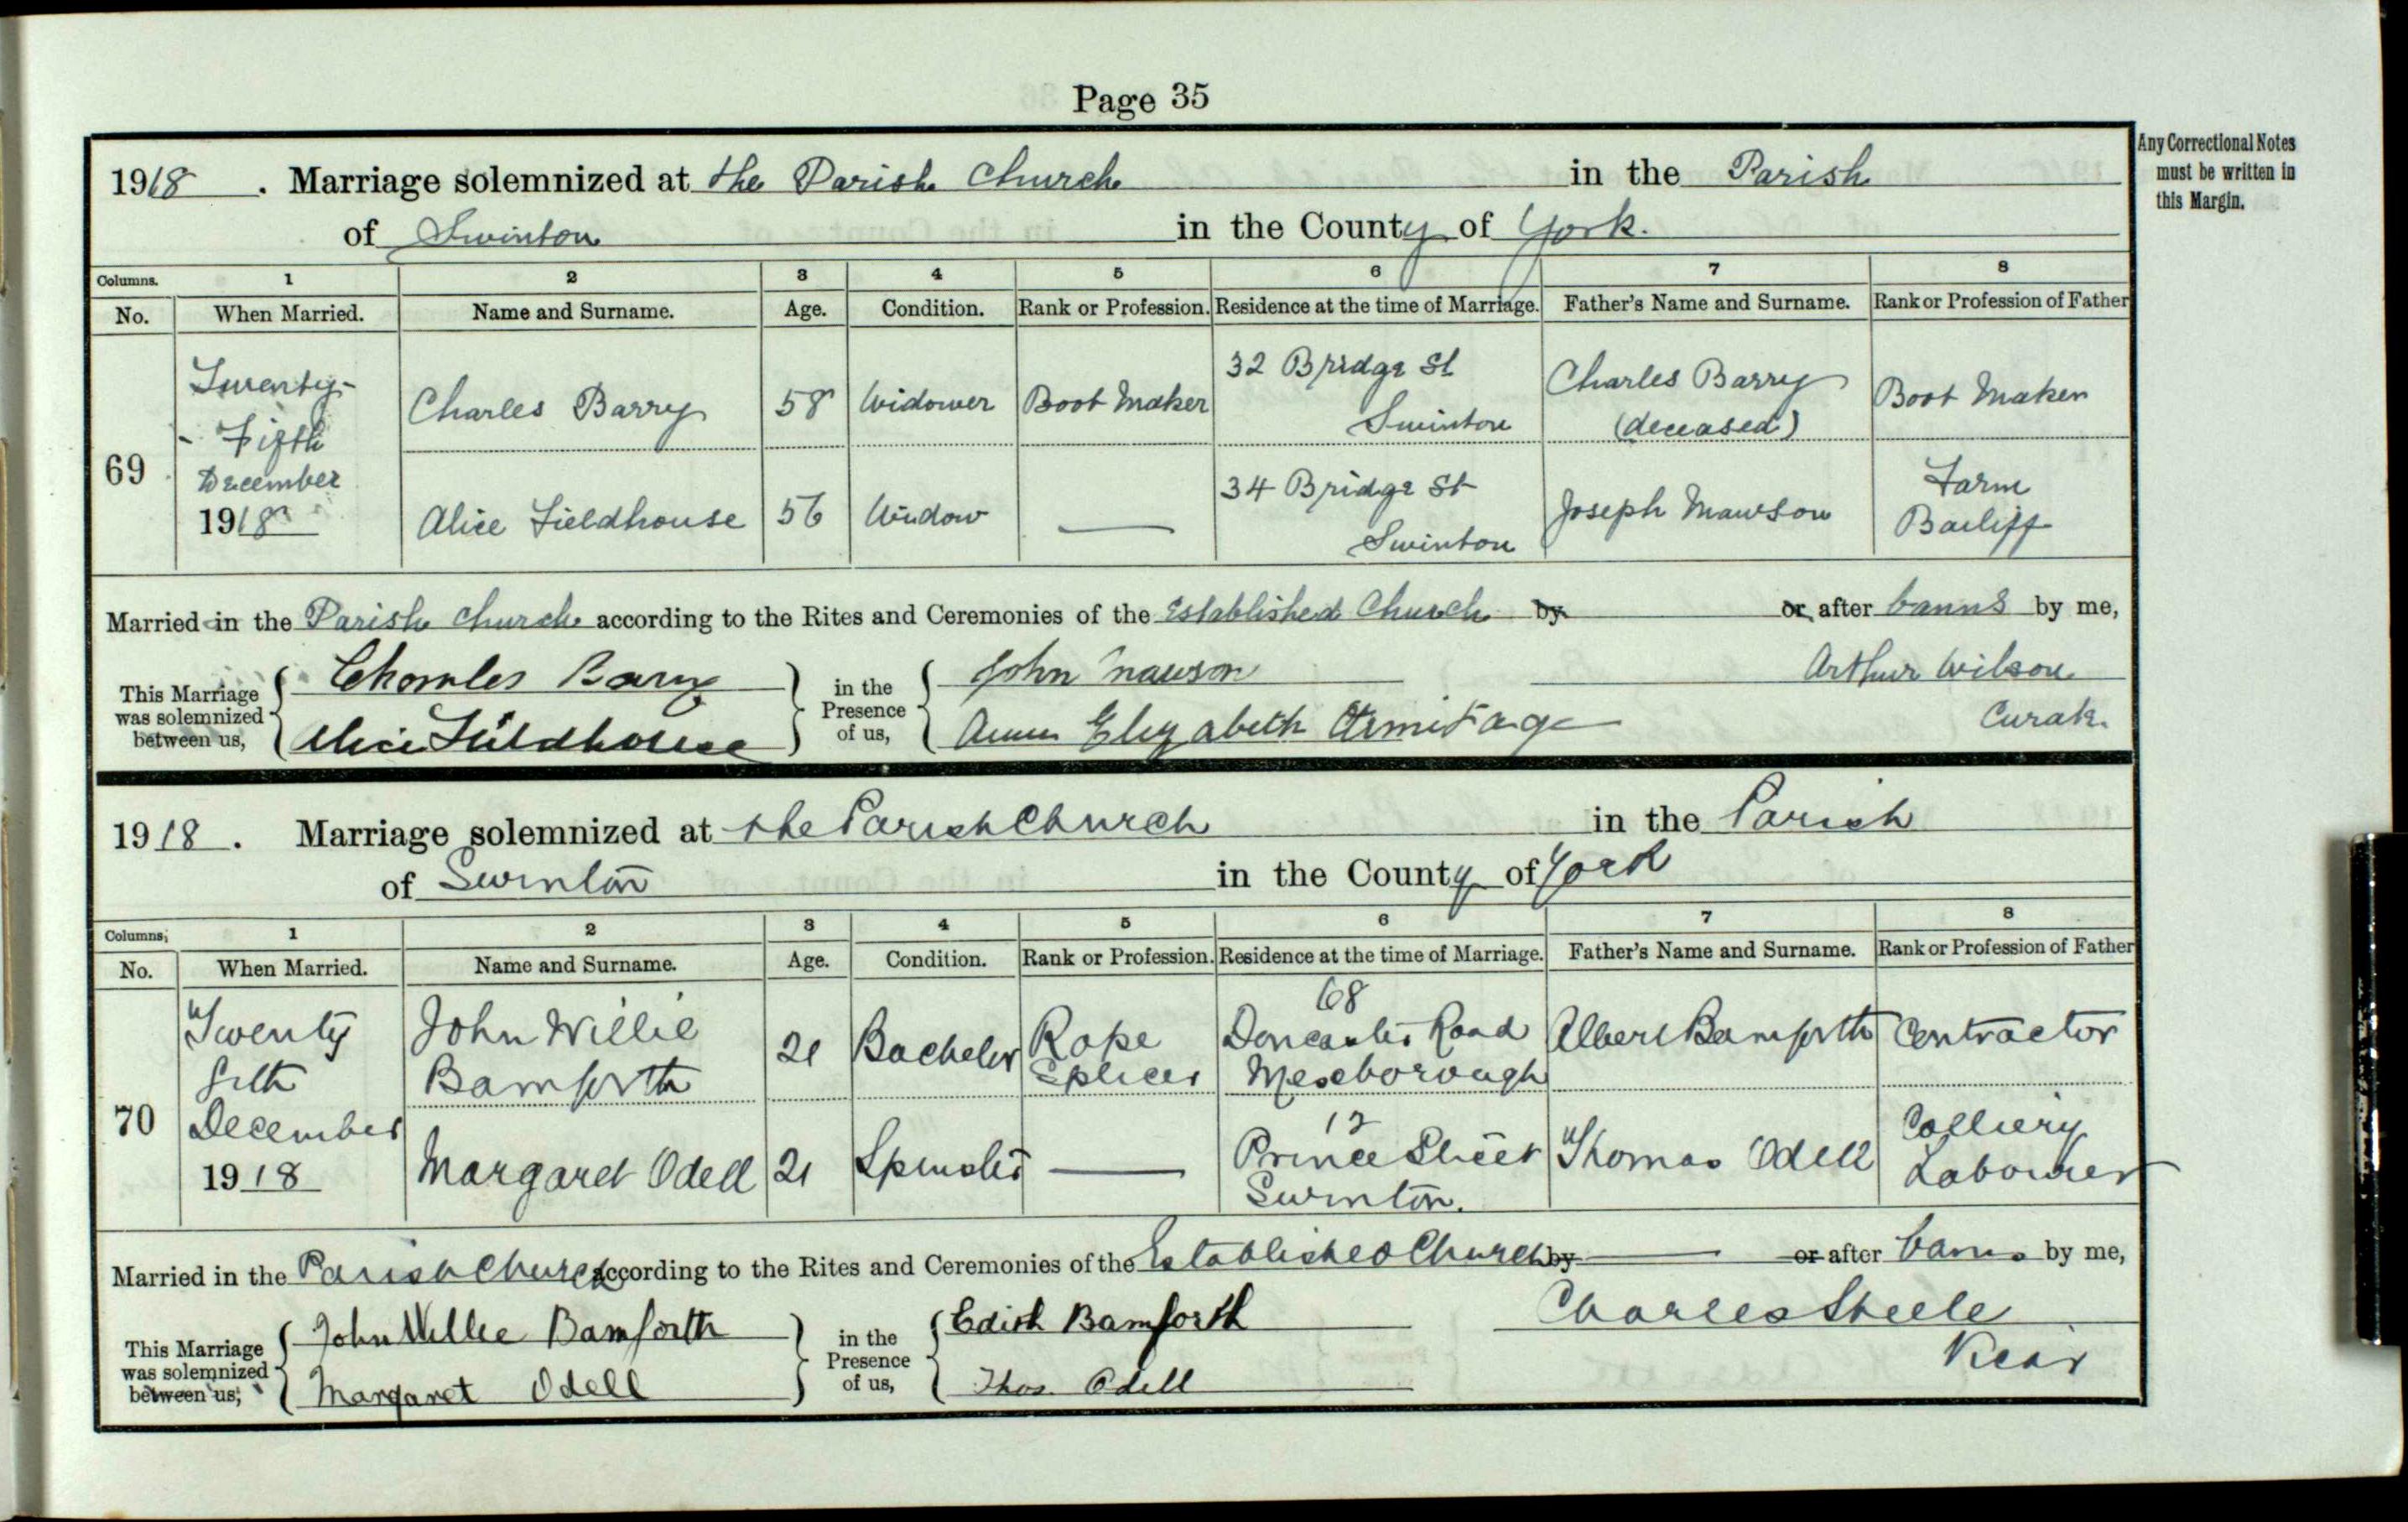 Page 35
Any Correctional Notes
must be written in
this Margin.
1918. Marriage solemnized at the Parish Church in the Parish
of Swinton in the County of York.
Columns. 1 2 3 4 5 6 7 8
No. When Married. Name and Surname. Age. Condition. Rank or Profession. Residence at the time of Marriage. Father's Name and Surname. Rank or Profession of Father
69
Twenty-
- Fifth
December
1918
Charles Barry 58 Widower Boot Maker
32 Bridge St
Swinton
Charles Barry
(deceased)
Boot Maker
Alice Fieldhouse 56 Widow
34 Bridge St
Swinton
Joseph Mawson
Farm
Bailiff
Married in the Parish Church according to the Rites and Ceremonies of the Established Church by or after banns by me,
This Marriage
was solemnized
between us,
Charles Barry
Alice Fieldhouse
in the
Presence
of us,
John Mawson
Elizabeth Armitage
Arthur Wilson
Curate.
1918. Marriage solemnized at the Parish Church in the Parish
of Swinton in the County of York
Columns. 1 2 3 4 5 6 7 8
No. When Married. Name and Surname. Age. Condition. Rank or Profession. Residence at the time of Marriage. Father's Name and Surname. Rank or Profession of Father
70
Twenty
fifth
December
1918
John Willie
Bamforth
21 Bachelor
Rope
Splicer
68
Doncaster Road
Mexborough
Albert Bamforth Contractor
Margaret Odell 21 Spinster
12
Prince Street
Swinton.
Thomas Odell
Colliery
Labourer
Married in the Parish Church according to the Rites and Ceremonies of the Established Church by or after banns by me,
This Marriage
was solemnized
between us,
John Willie Bamforth
Margaret Odell
in the
Presence
of us,
Edith Bamforth
Thos. Odell
Charles Steele
Vicar